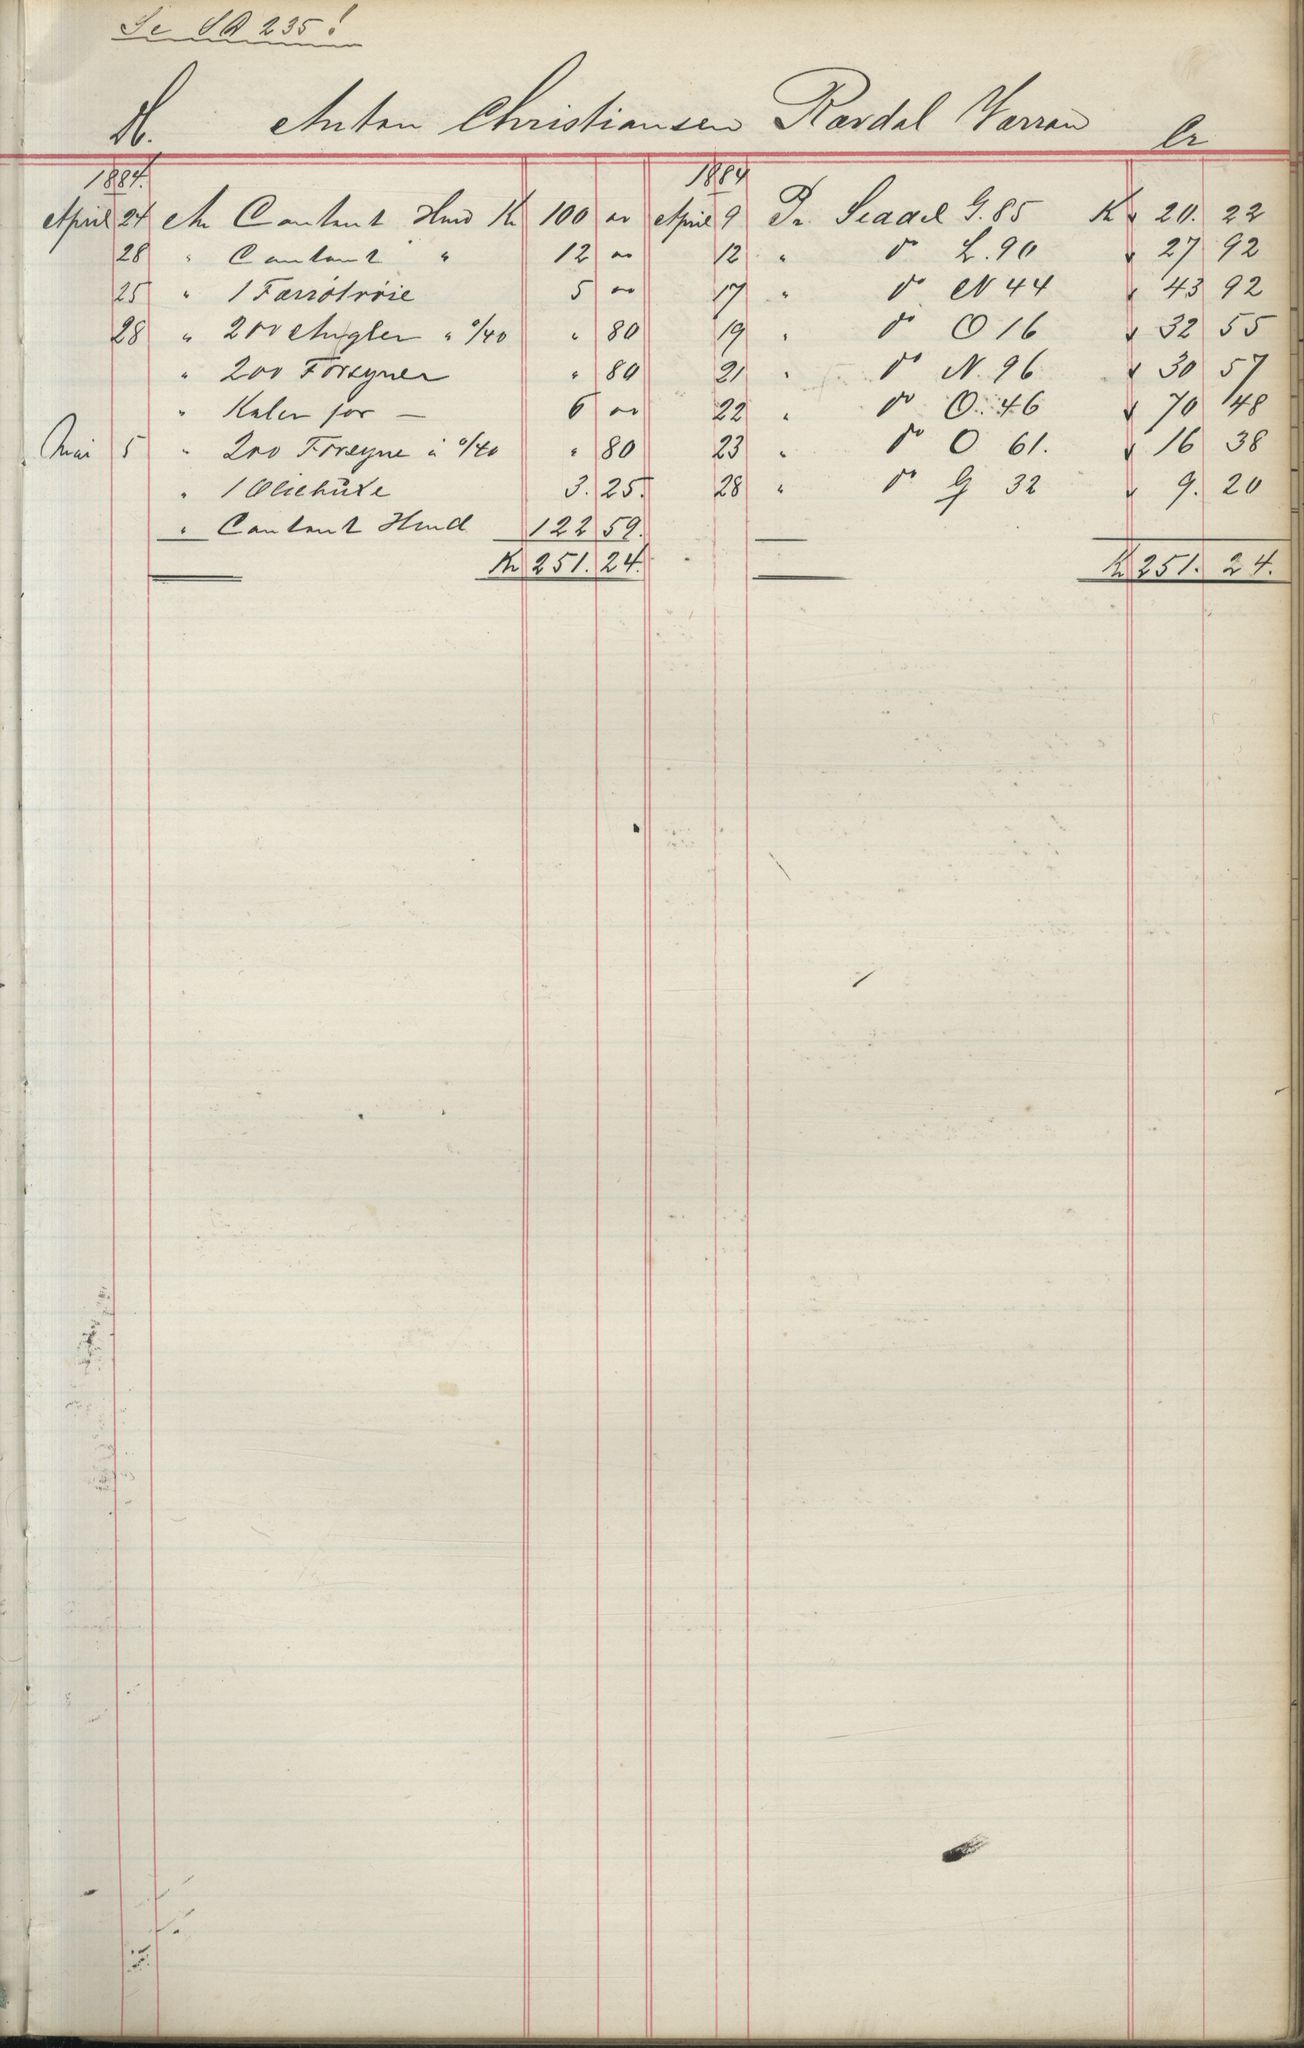 Se SB 235!
D. Anton Christiansen Rørdal Værran Cr
1884. 1884
April 24 An Contant Hmd Kr 100 00 April 9 Pr Seddel G. 85 Kr 20. 22
28 " Contant " 12 00 12 " do L. 90 27 92
25 " 1 Færrötröie 5 00 17 " do N 44 43 92
28 " 200 Angler " 0/40 " 80 19 " do O 16 32 55
" 200 Forsyner " 80 21 " do N. 96 30 57
" for — 6 00 22 " do O. 46 70 48
Mai 5 " 200 Forsyne á 0/40 " 80 23 " do O 61. 16 38
" 1 Oliebuxe 3. 25. 28 " do G 32 9. 20
" Contant Hmd 122 59.
Kr 251. 24. Kr 251. 24.